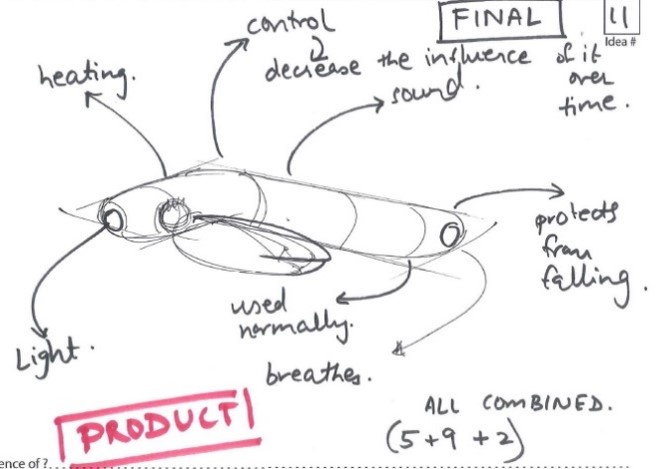 FINAL
11
Idea #
control
decrease the influence of it
over
time.
heating.
sound.
protects
from
falling.
used
normally.
Light.
breathes.
PRODUCT
ALL COMBINED.
(5+9+2)
ence of?